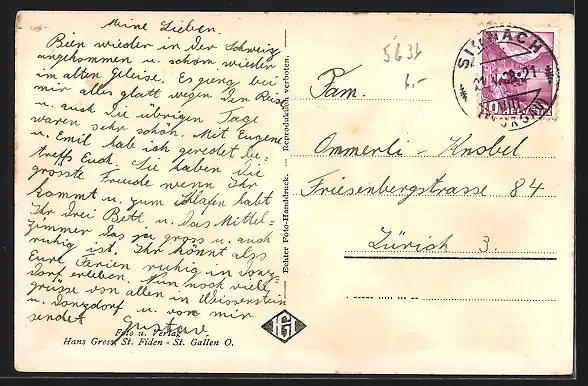 Meine Lieben.
Bien wieder in der Schweiz
angekommen u. schon wieder
im alten Geleise. Es gieng bei
mir alles glatt wegen den Reise
u. auch die übrigen Tage
waren sehr schön. Mit Eugene
u. Emil hab ich geredet be-
treffs Euch. Sie haben die
grosste Freude wenn Ihr
kommt u. zum schlafen habt
Ihr drei Bett u. das Mittel-
zimmer das ja gross u. auch
ruhig ist. Ihr könnt also
Eure Ferien ruhig in Donz-
dorf erleben. Nun noch viele
grüsse von allen in Weissenstein
u. Donzdorf u. von mir
sendet Gustav.
Foto u. Verlag
Hans Gross, St. Fiden - St. Gallen O.
Echter Foto-Handdruck. Reproduktion verboten.
HG
5631
6.-
SIRNACH
10
Fam.
Ommerli - Knobel
Friesenbergstrasse 84
Zürich 3.